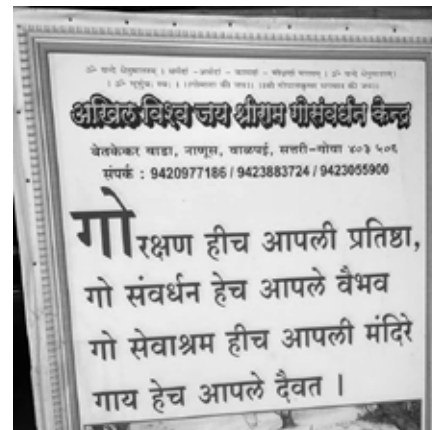 ॐ वन्दे धेनुमातरम् ।
अखिल विश्व जय श्रीराम गोसंवर्धन केन्द्र
बेतकेकर वाडा, नाणूस, वाळपई, सत्तरी-गोवा ४०३ ५०६
संपर्क : 9420977186 / 9423883724 / 9423055900
गोरक्षण हीच आपली प्रतिष्ठा,
गो संवर्धन हेच आपले वैभव
गो सेवाश्रम हीच आपली मंदिरे
गाय हेच आपले दैवत ।